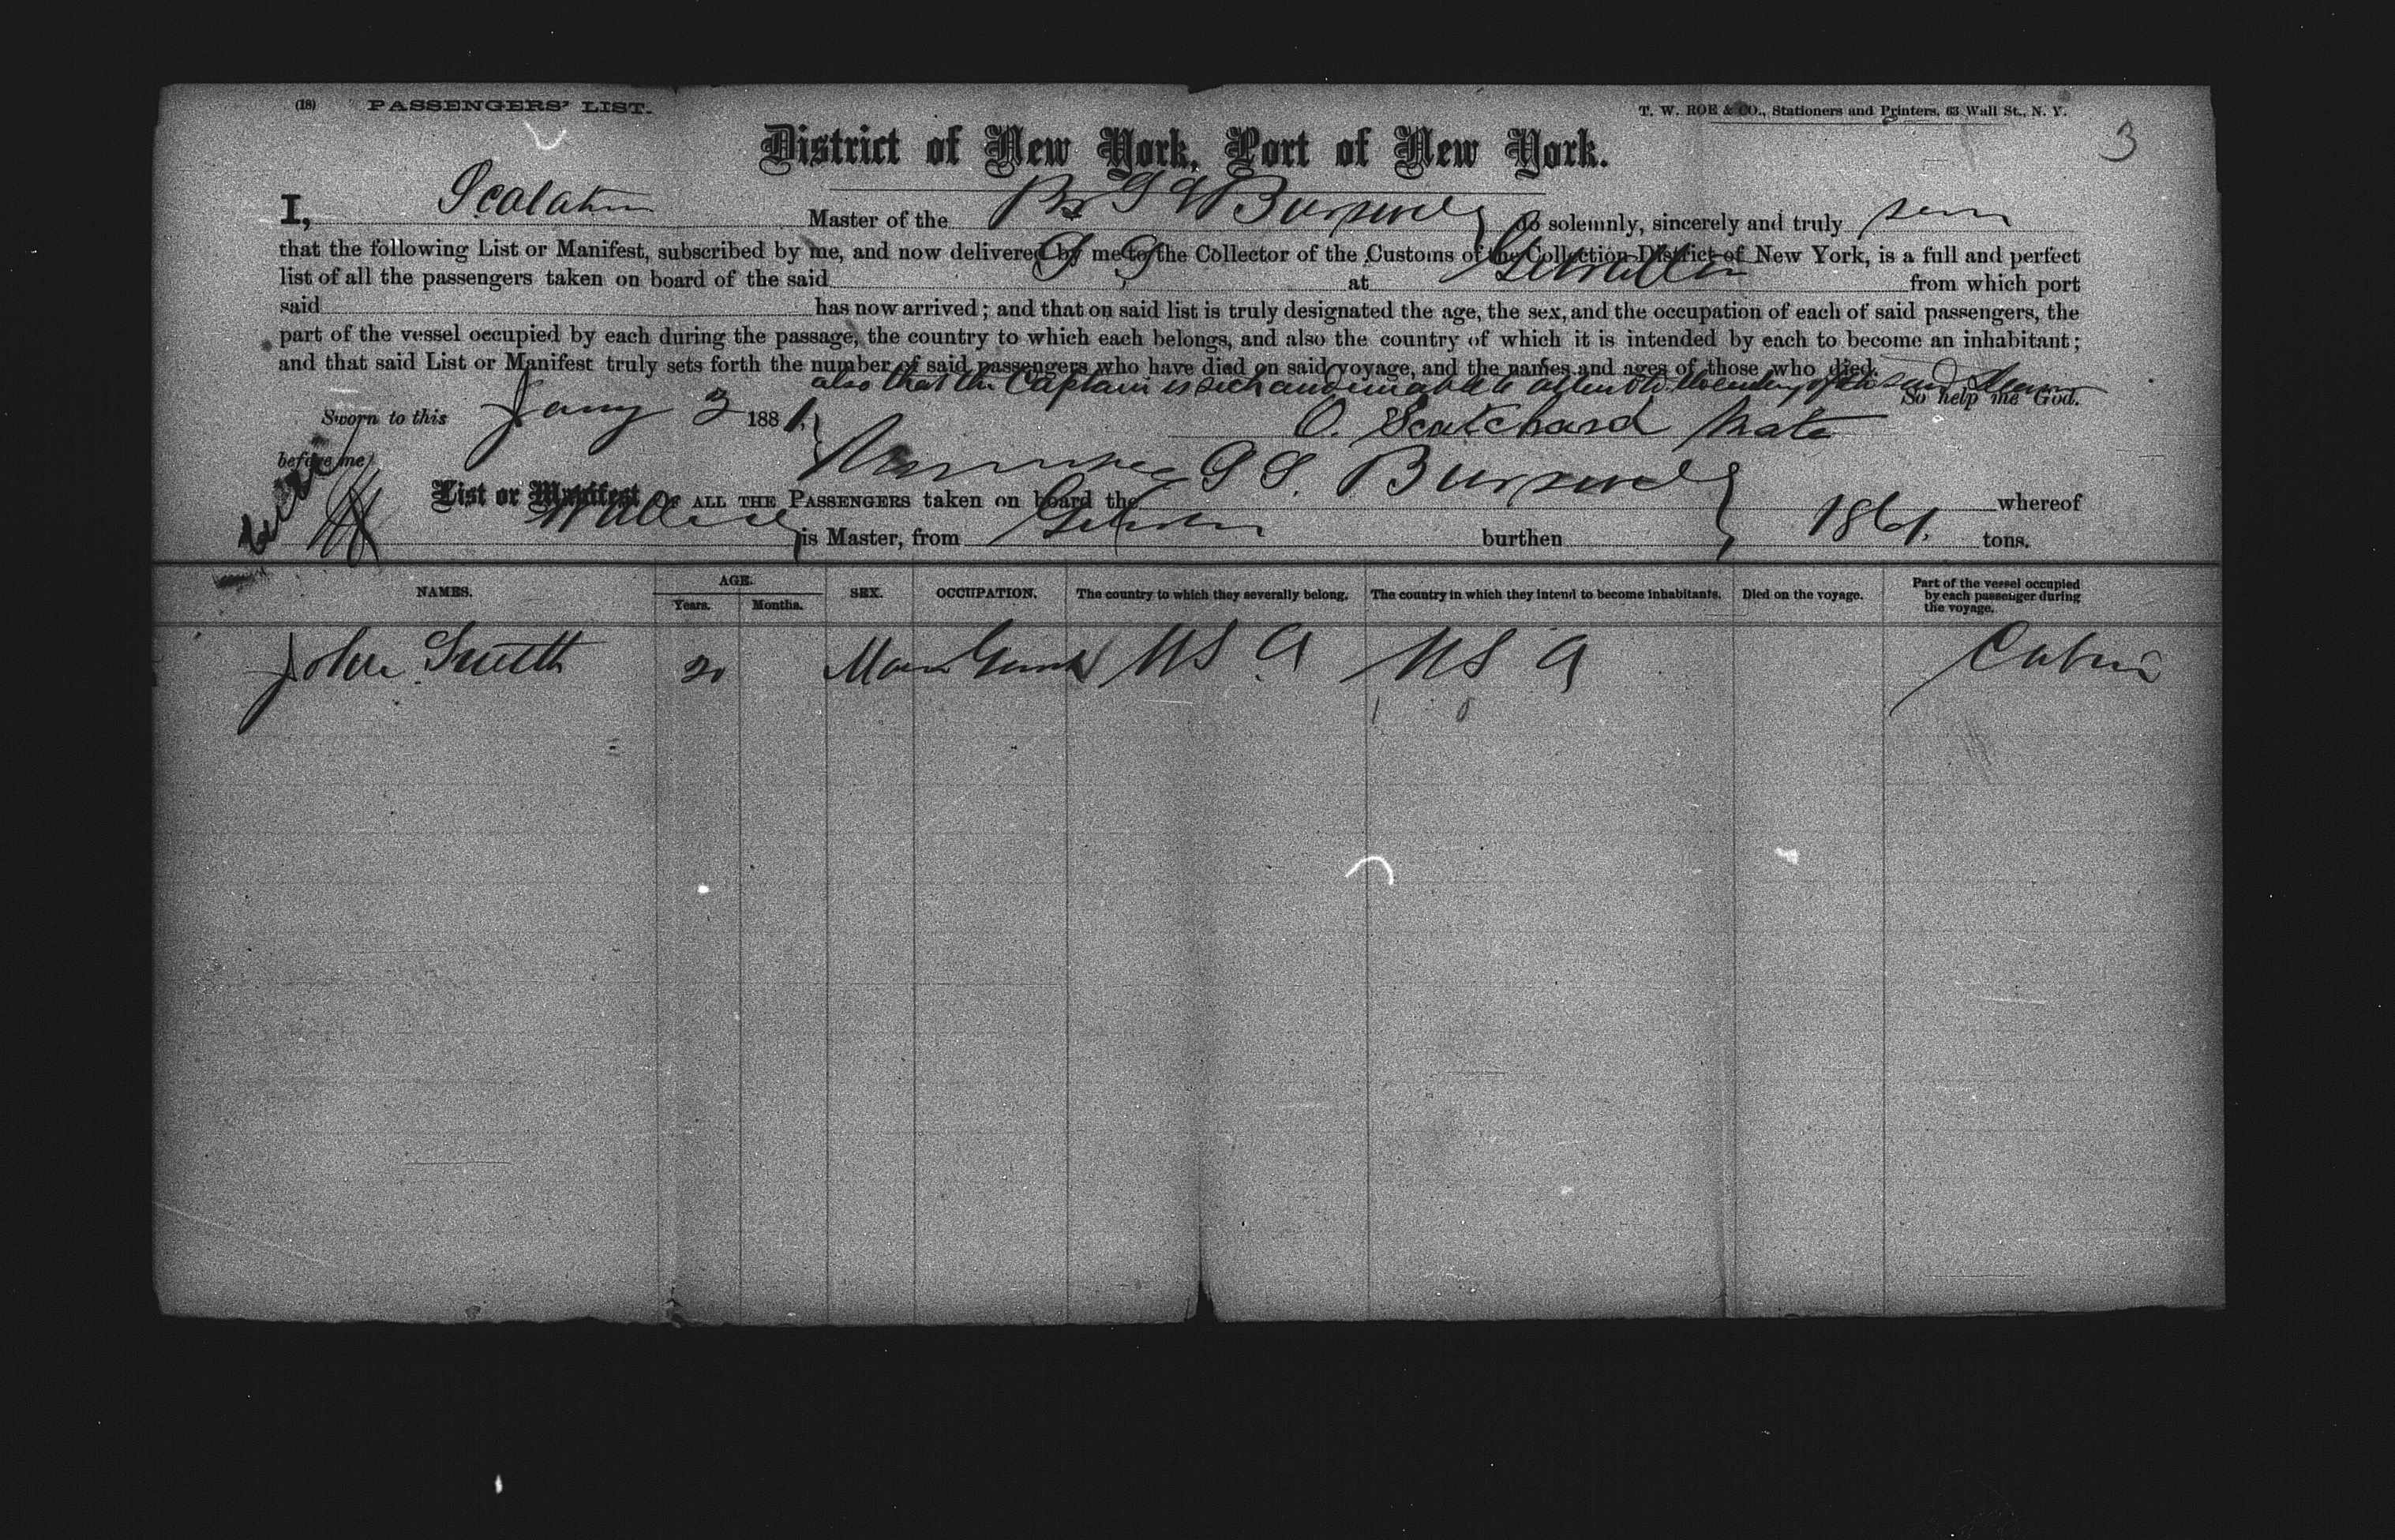 (18) PASSENGERS' LIST. T. W. ROE & CO., Stationers and Printers, 63 Wall St., N. Y.
3
District of New York, Port of New York.
I, Master of the Br S S Burswell do solemnly, sincerely and truly
that the following List or Manifest, subscribed by me, and now delivered by me to the Collector of the Customs of the Collection District of New York, is a full and perfect
list of all the passengers taken on board of the said S S at Gibraltar from which port
said has now arrived; and that on said list is truly designated the age, the sex, and the occupation of each of said passengers, the
part of the vessel occupied by each during the passage, the country to which each belongs, and also the country of which it is intended by each to become an inhabitant;
and that said List or Manifest truly sets forth the number of said passengers who have died on said voyage, and the names and ages of those who died.
also that the Captain is sick and unable to attend to the entry of the said Steamer
So help me God.
Sworn to this Jany 3 1881.
O. Scatchard Mate
before me
List or Manifest OF ALL THE PASSENGERS taken on board the S S. Burswell whereof
is Master, from burthen 1861. tons.
NAMES. AGE. Years. Months. SEX. OCCUPATION. The country to which they severally belong. The country in which they intend to become inhabitants. Died on the voyage. Part of the vessel occupied by each passenger during the voyage.
John Smith 20 Man Gent U S A U S A Cabin